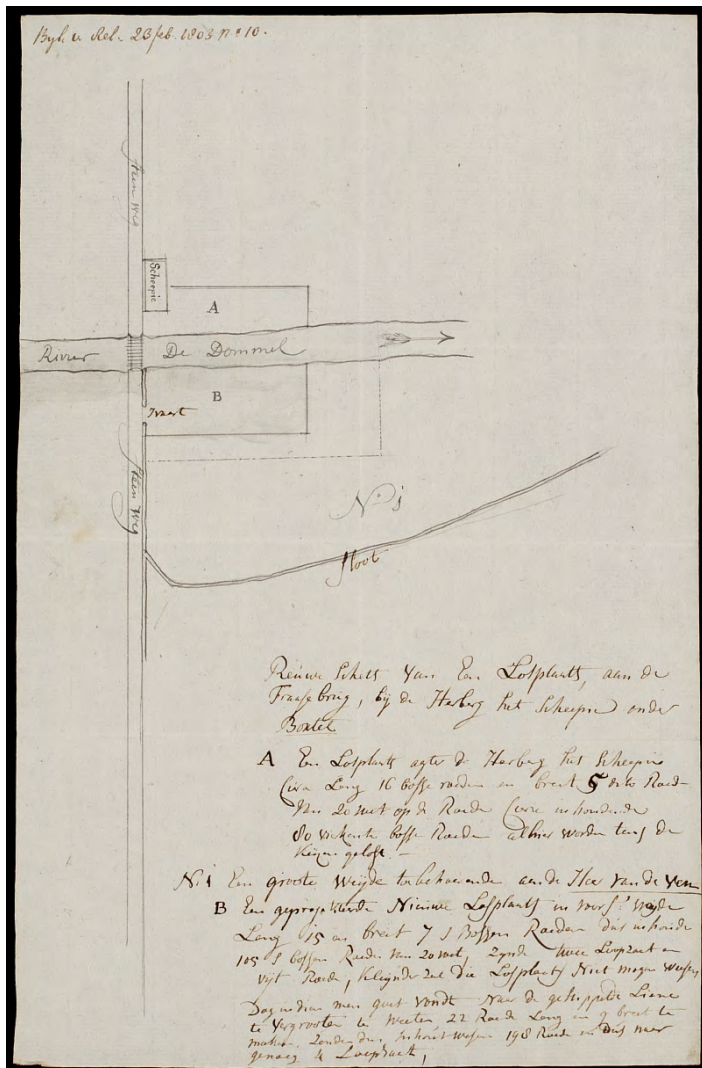 Byl. a Rel. 23 feb. 1803 no 10.
Steen weg
Scheepie
A
Rivier De Dommel
B
Steen Weg
N. 1
sloot
Ruwe Schets Van Een Losplaats, aan de
brug, bij de Harberg het Scheepie onder
Boxtel
A Een Losplaats agter de Harberg het Scheepie
Circa Lang 16 bosse roeden en breet 5 dito Roed
van 20 voet op de Roede Circa inhoudende
80 vierkante bosse Roeden alhier worden tans de
gelost -
N. 1 Een groote Weijde toebehoorende aan de Heer Van de Ven
B Een geprojecteerde Nieuwe Losplaats in voors. weijde
Lang 15 en breet 7 Bossen Roeden dus inhoude
105 bossen Roeden van 20 voet, zynde twee Loopzaet en
vijf Roede, kleynder zal die Losplaats Niet mogen weesen
Dog indien men goet vondt Naar de gestippelde Linie
te vergrooten te weeten 22 Roede Lang en 9 breet te
maken, zoude dus inhout wesen 198 Roede en dus naer
genoeg 4 Loopzaet,